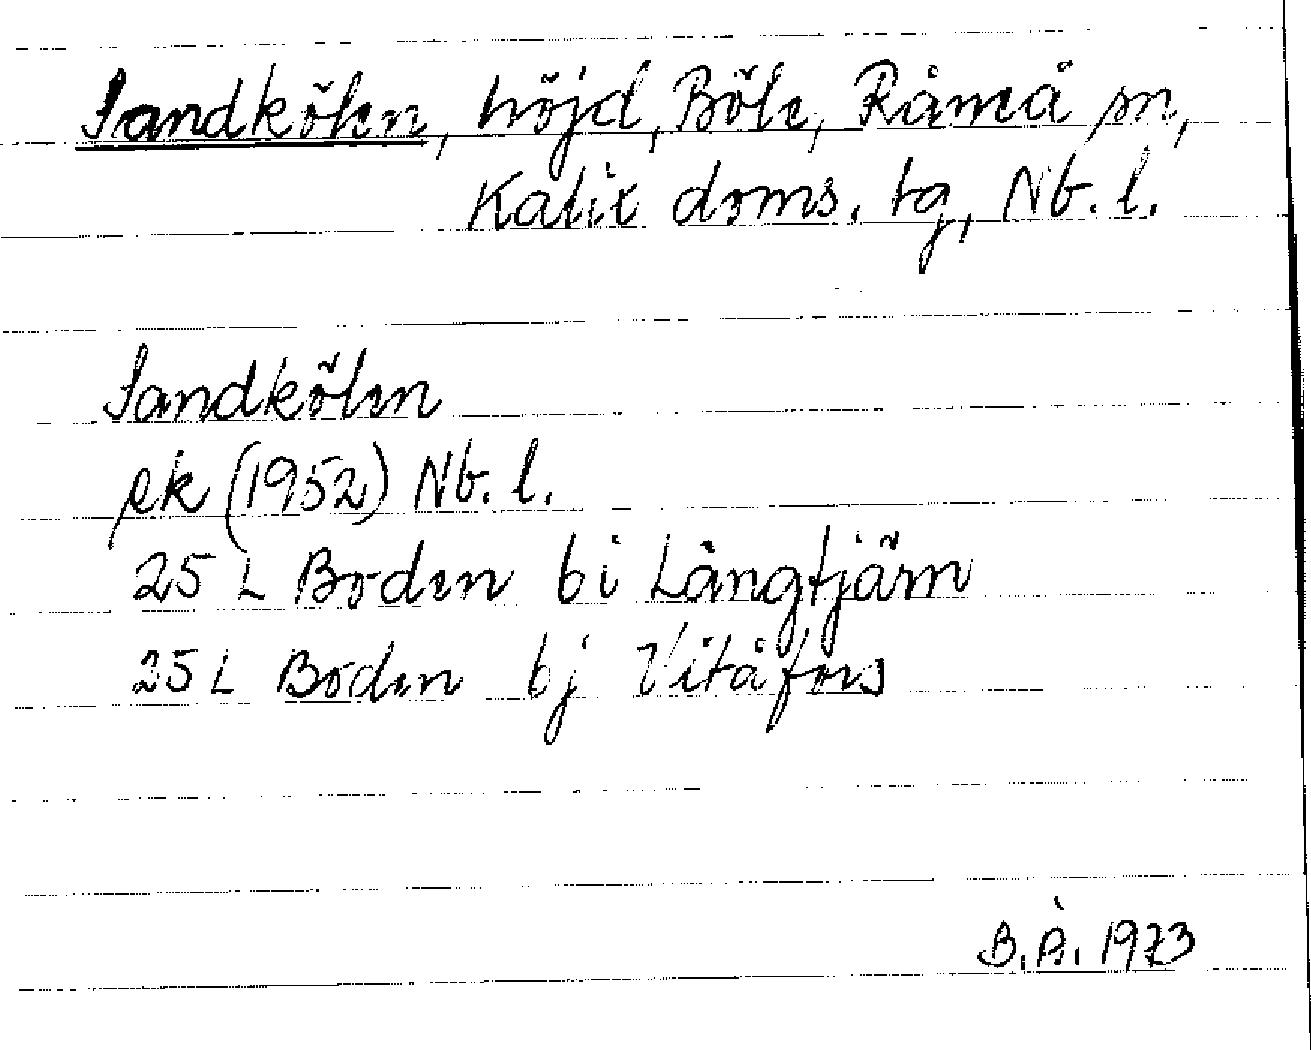 Sandkölen, höjd, Böle, Råneå sn,
Kalix doms. tg, Nb. l.
Sandkölen
ek (1952) Nb. l.
25 L Boden bi Långtjärn
25 L Boden bj Vitåfors
B.Å. 1973